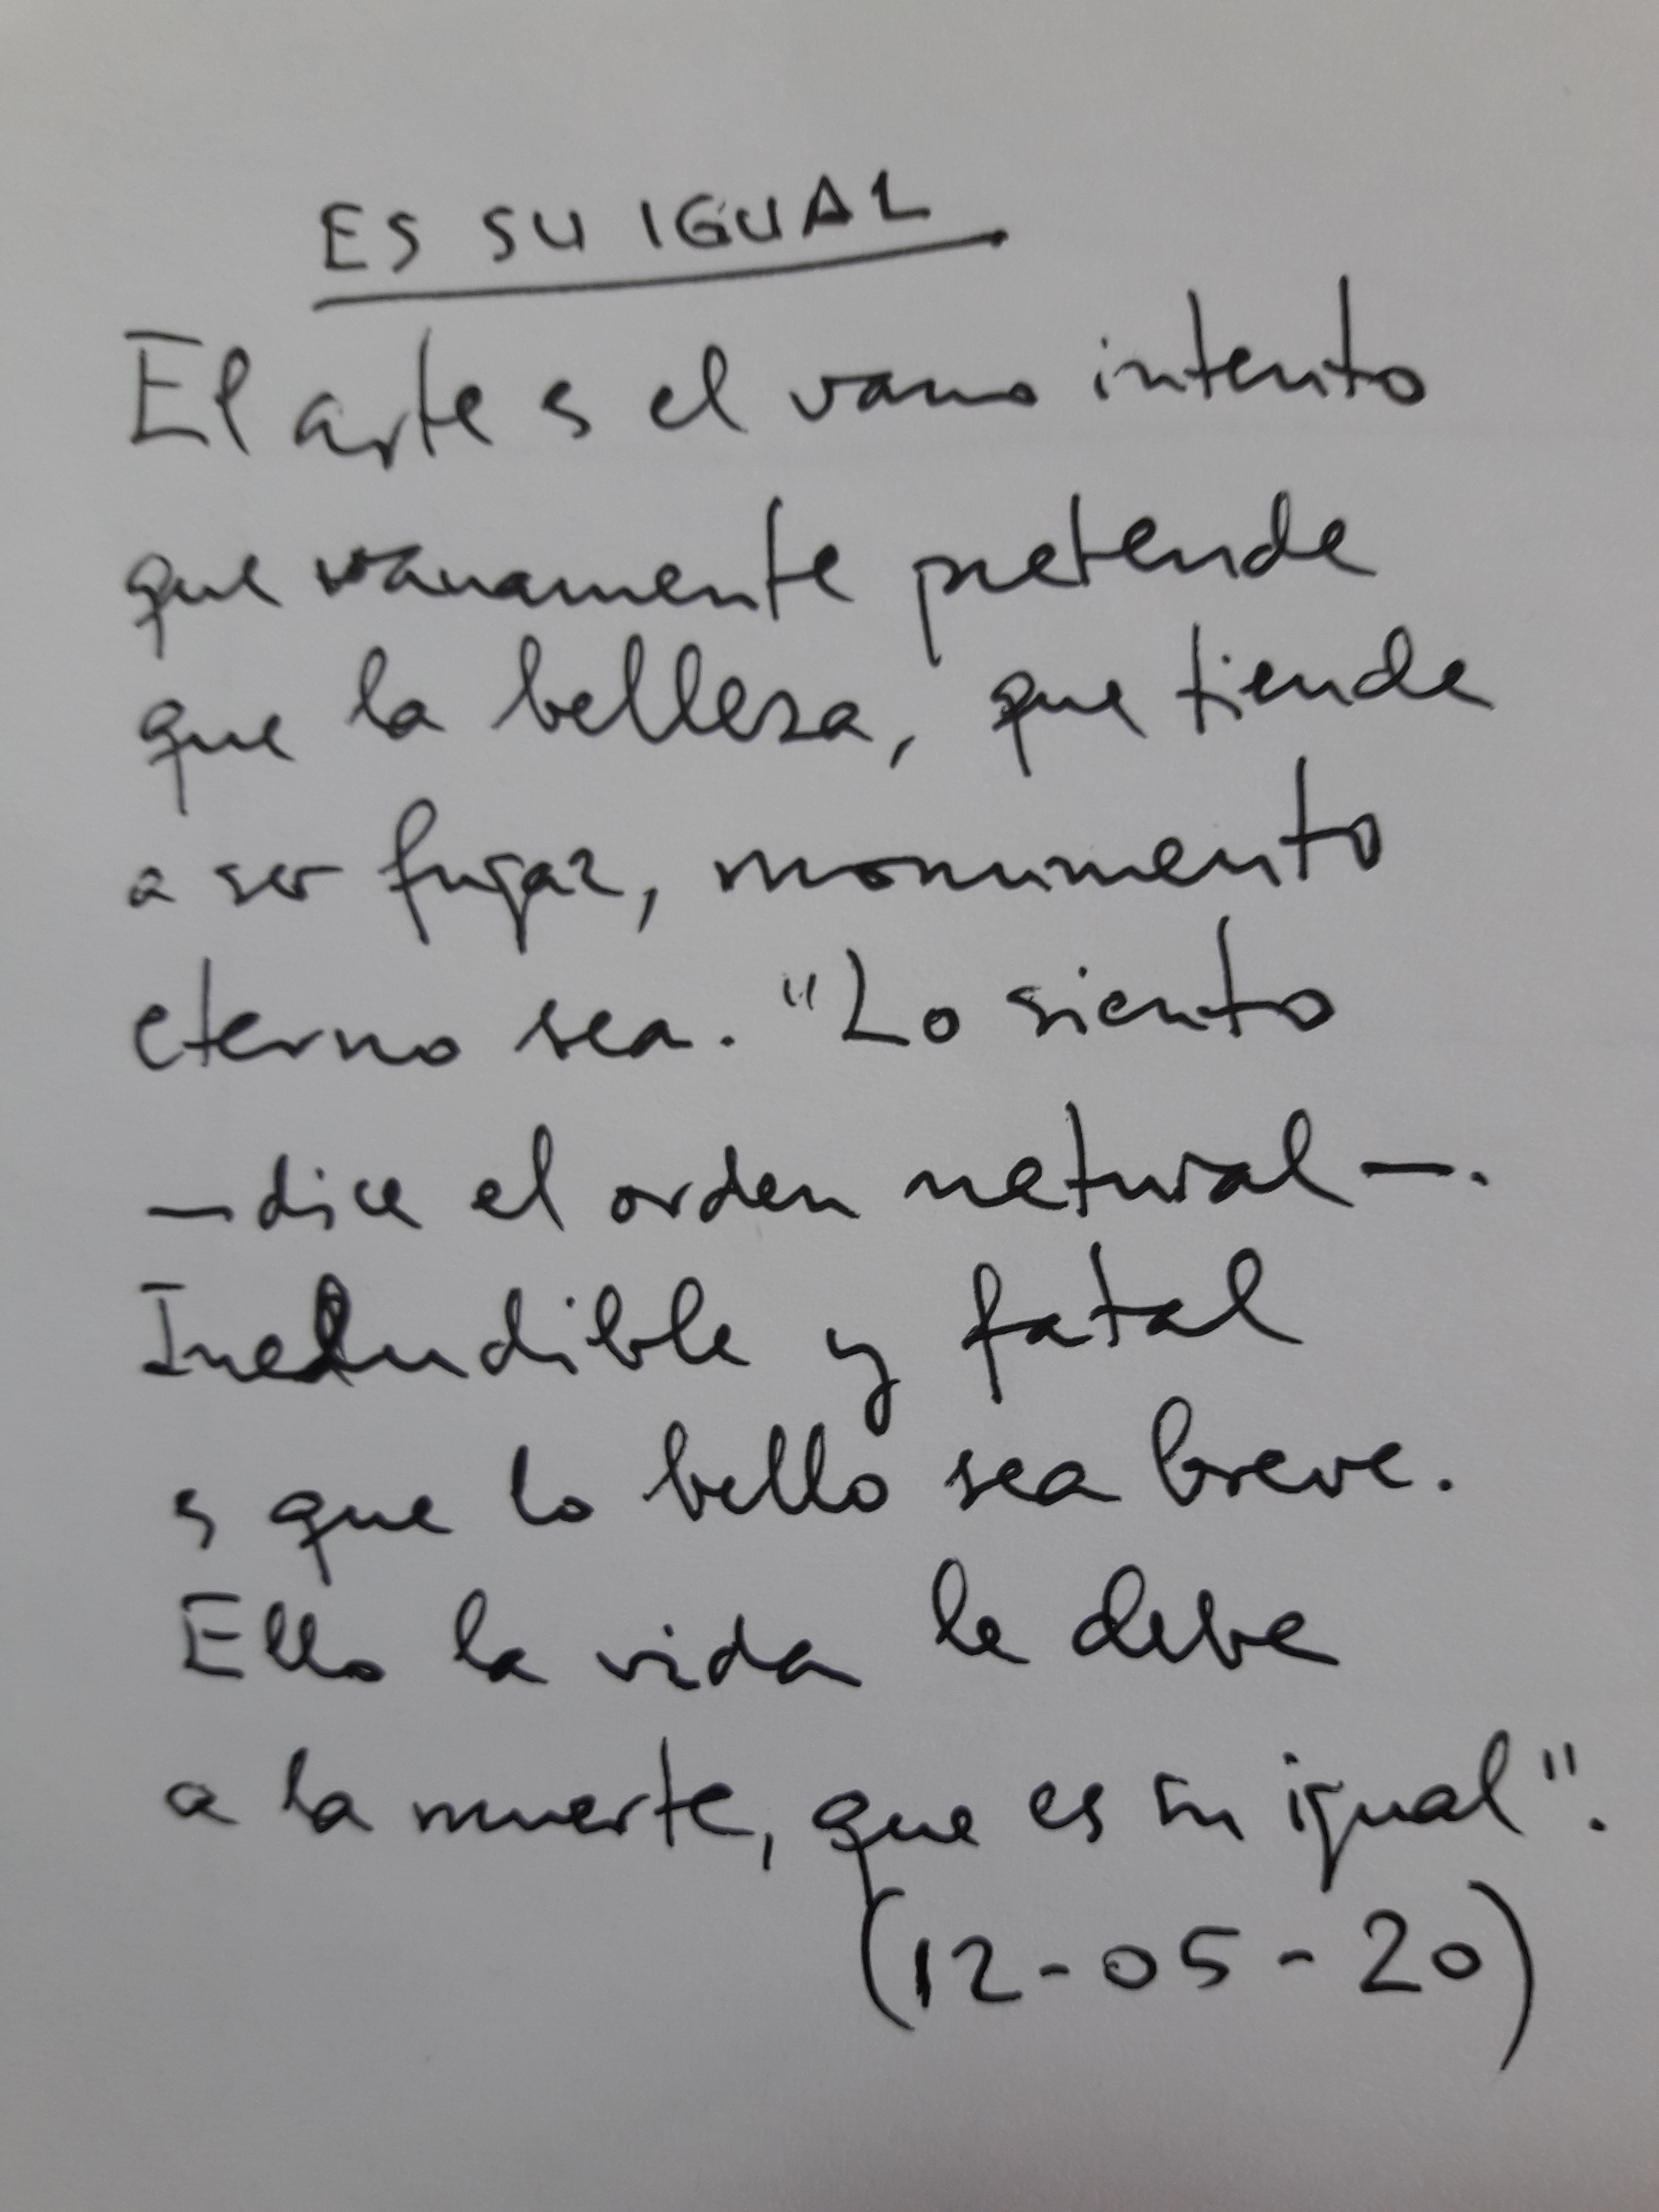 ES SU IGUAL
El arte es el vano intento
que vanamente pretende
que la belleza, que tiende
a ser fugaz, monumento
eterno sea. "Lo siento
—dice el orden natural—.
Ineludible y fatal
es que lo bello sea breve.
Ello la vida le debe
a la muerte, que es su igual".
(12-05-20)